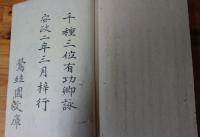 千種三位有功卿詠
安政二年三月梓行
鶯蛙園蔵